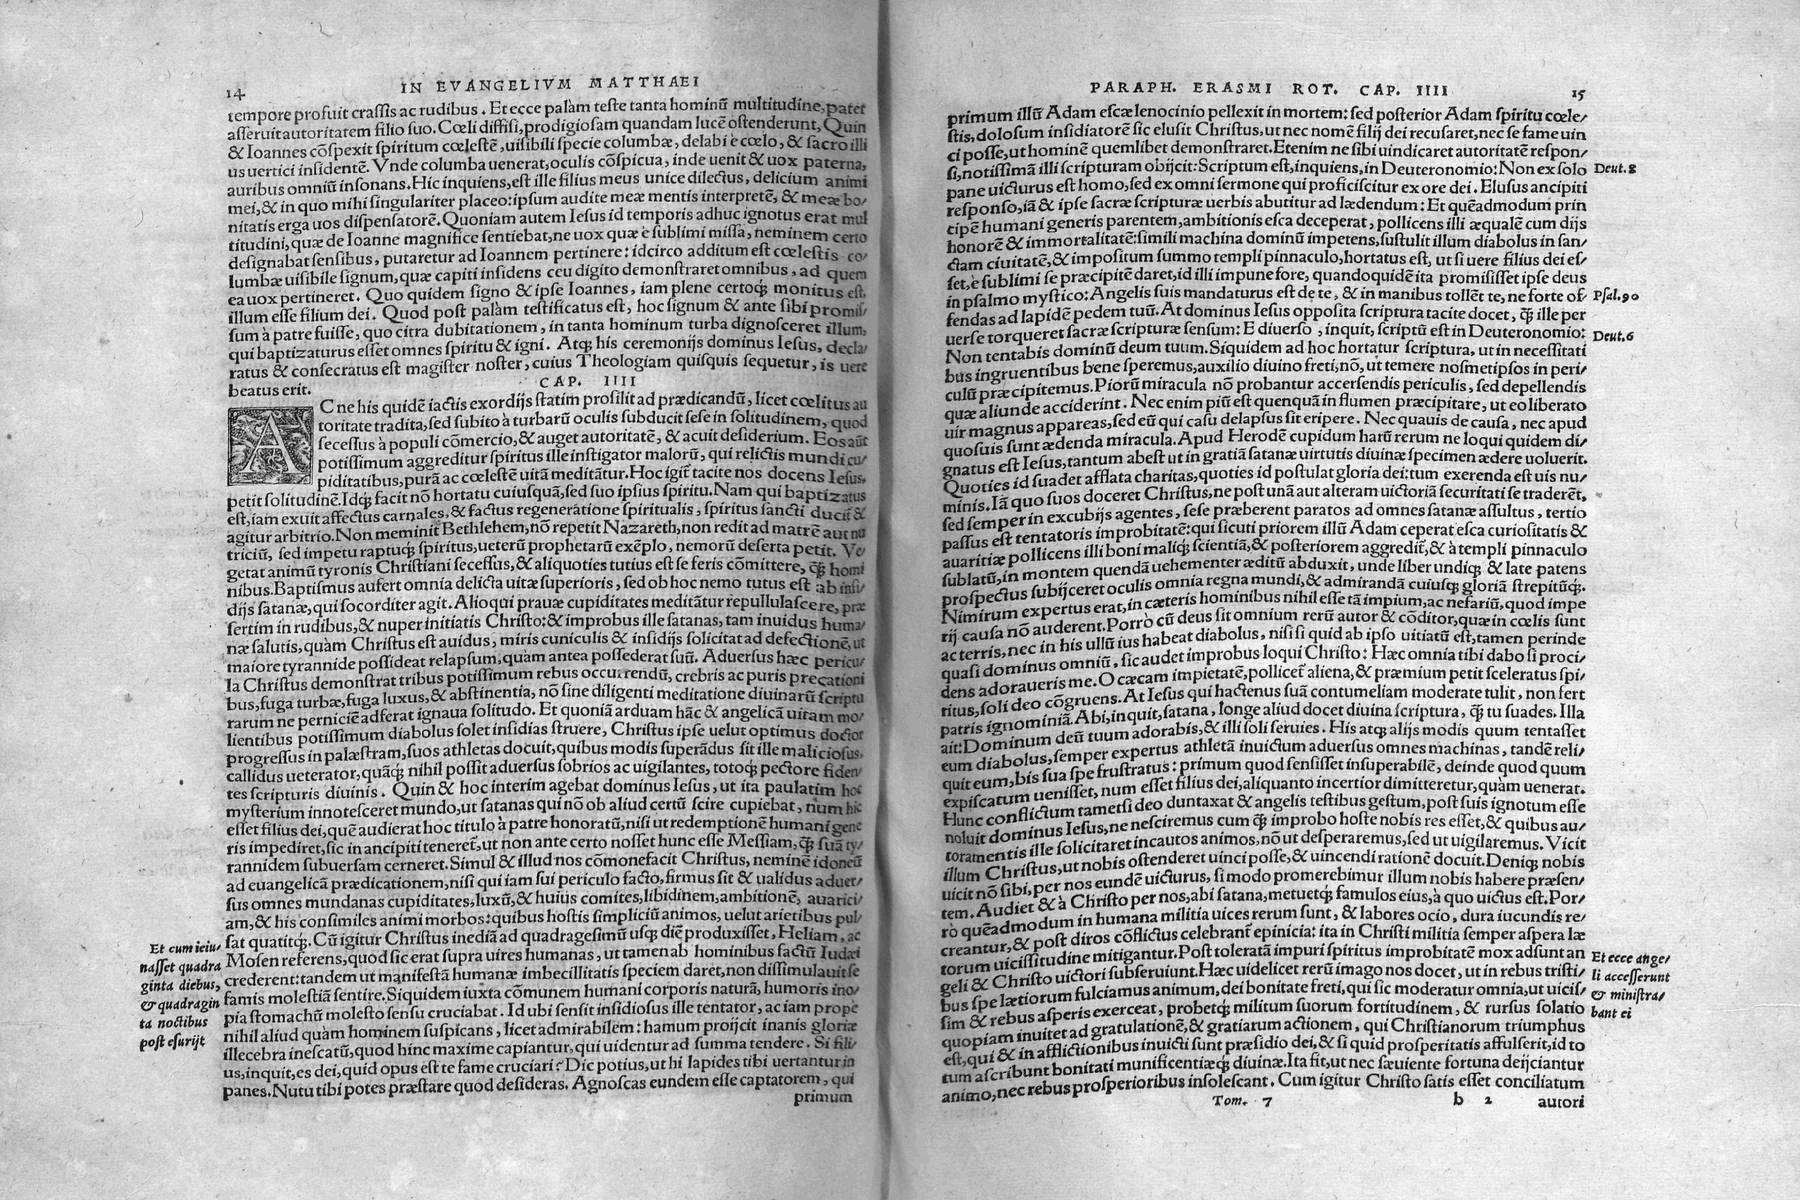 14 IN EVANGELIVM MATTHAEI
tempore profuit crassis ac rudibus. Et ecce palàm teste tanta hominũ multitudine, patet
asseruit autoritatem filio suo. Cœli diffisi, prodigiosam quandam lucẽ ostenderunt, Quin
& Ioannes cõspexit spiritum cœlestẽ, uisibili specie columbæ, delabi è cœlo, & sacro illi
us uertici insidentẽ. Vnde columba uenerat, oculis cõspicua, inde uenit & uox paterna,
auribus omniũ insonans. Hic inquiens, est ille filius meus unice dilectus, delicium animi
mei, & in quo mihi singulariter placeo: ipsum audite meæ mentis interpretẽ, & meæ bo/
nitatis erga uos dispensatorẽ. Quoniam autem Iesus id temporis adhuc ignotus erat mul
titudini, quæ de Ioanne magnifice sentiebat, ne uox quæ è sublimi missa, neminem certo
designabat sensibus, putaretur ad Ioannem pertinere: idcirco additum est cœlestis co/
lumbæ uisibile signum, quæ capiti insidens ceu digito demonstraret omnibus, ad quem
ea uox pertineret. Quo quidem signo & ipse Ioannes, iam plene certoq́; monitus est,
illum esse filium dei. Quod post palàm testificatus est, hoc signum & ante sibi promis/
sum à patre fuisse, quo citra dubitationem, in tanta hominum turba dignosceret illum,
qui baptizaturus esset omnes spiritu & igni. Atq; his ceremonijs dominus Iesus, decla/
ratus & consecratus est magister noster, cuius Theologiam quisquis sequetur, is uere
beatus erit.
CAP. IIII
AC ne his quidẽ iactis exordijs statim prosilit ad prædicandũ, licet cœlitus au
toritate tradita, sed subito à turbarũ oculis subducit sese in solitudinem, quod
secessus à populi cõmercio, & auget autoritatẽ, & acuit desiderium. Eos aũt
potissimum aggreditur spiritus ille instigator malorũ, qui relictis mundi cu/
piditatibus, purã ac cœlestẽ uitã meditãtur. Hoc igit̃ tacite nos docens Iesus,
petit solitudinẽ. Idq́; facit nõ hortatu cuiusquã, sed suo ipsius spiritu. Nam qui baptizatus
est, iam exuit affectus carnales, & factus regeneratione spiritualis, spiritus sancti ducit̃ &
agitur arbitrio. Non meminit Bethlehem, nõ repetit Nazareth, non redit ad matrẽ aut nu
triciũ, sed impetu raptuq́; spiritus, ueterũ prophetarũ exẽplo, nemorũ deserta petit. Ve/
getat animũ tyronis Christiani secessus, & aliquoties tutius est se feris cõmittere, q̃; homi
nibus. Baptismus aufert omnia delicta uitæ superioris, sed ob hoc nemo tutus est ab insi/
dijs satanæ, qui socorditer agit. Alioqui prauæ cupiditates meditãtur repullulascere, præ
sertim in rudibus, & nuper initiatis Christo: & improbus ille satanas, tam inuidus huma/
næ salutis, quàm Christus est auidus, miris cuniculis & insidijs solicitat ad defectionẽ, ut
maiore tyrannide possideat relapsum, quàm antea possederat suũ. Aduersus hæc pericu/
la Christus demonstrat tribus potissimum rebus occurrendũ, crebris ac puris precationi
bus, fuga turbæ, fuga luxus, & abstinentia, nõ sine diligenti meditatione diuinarũ scriptu
rarum ne perniciẽ adferat ignaua solitudo. Et quoniã arduam hãc & angelicã uitam mo/
lientibus potissimum diabolus solet insidias struere, Christus ipse uelut optimus doctor
progressus in palæstram, suos athletas docuit, quibus modis superãdus sit ille maliciosus,
callidus ueterator, quãq́; nihil possit aduersus sobrios ac uigilantes, totoq́; pectore fiden/
tes scripturis diuinis. Quin & hoc interim agebat dominus Iesus, ut ita paulatim hoc
mysterium innotesceret mundo, ut satanas qui nõ ob aliud certũ scire cupiebat, num hic
esset filius dei, quẽ audierat hoc titulo à patre honoratũ, nisi ut redemptionẽ humani gene
ris impediret, sic in ancipiti teneret̃, ut non ante certo nosset hunc esse Messiam, q̃; suã ty/
rannidem subuersam cerneret. Simul & illud nos cõmonefacit Christus, neminẽ idoneũ
ad euangelicã prædicationem, nisi qui iam sui periculo facto, firmus sit & ualidus aduer/
sus omnes mundanas cupiditates, luxũ, & huius comites, libidinem, ambitionẽ, auarici/
am, & his consimiles animi morbos: quibus hostis simpliciũ animos, uelut arietibus pul/
sat quatitq́;. Cũ igitur Christus inediã ad quadragesimũ usq; diẽ produxisset, Heliam, ac
Mosen referens, quod sic erat supra uires humanas, ut tamen ab hominibus factũ Iudæi
crederent: tandem ut manifestã humanæ imbecillitatis speciem daret, non dissimulauit se
famis molestiã sentire. Siquidem iuxta cõmunem humani corporis naturã, humoris ino/
pia stomachũ molesto sensu cruciabat. Id ubi sensit insidiosus ille tentator, ac iam prope
nihil aliud quàm hominem suspicans, licet admirabilem: hamum proijcit inanis gloriæ
illecebra inescatũ, quod hinc maxime capiantur, qui uidentur ad summa tendere. Si fili/
us, inquit, es dei, quid opus est te fame cruciari? Dic potius, ut hi lapides tibi uertantur in
panes. Nutu tibi potes præstare quod desideras. Agnoscas eundem esse captatorem, qui
primum
Et cum ieiu/
nasset quadra
ginta diebus,
& quadragin
ta noctibus
post esurijt
PARAPH. ERASMI ROT. CAP. IIII 15
primum illũ Adam escæ lenocinio pellexit in mortem: sed posterior Adam spiritu cœle/
stis, dolosum insidiatorẽ sic elusit Christus, ut nec nomẽ filij dei recusaret, nec se fame uin
ci posse, ut hominẽ quemlibet demonstraret. Etenim ne sibi uindicaret autoritatẽ respon/
si, notissimã illi scripturam obijcit: Scriptum est, inquiens, in Deuteronomio: Non ex solo
pane uicturus est homo, sed ex omni sermone qui proficiscitur ex ore dei. Elusus ancipiti
responso, iã & ipse sacræ scripturæ uerbis abutitur ad lædendum: Et quẽadmodum prin
cipẽ humani generis parentem, ambitionis esca deceperat, pollicens illi æqualẽ cum dijs
honorẽ & immortalitatẽ: simili machina dominũ impetens, sustulit illum diabolus in san/
ctam ciuitatẽ, & impositum summo templi pinnaculo, hortatus est, ut si uere filius dei es/
set, è sublimi se præcipitẽ daret, id illi impune fore, quandoquidẽ ita promisisset ipse deus
in psalmo mystico: Angelis suis mandaturus est de te, & in manibus tollẽt te, ne forte of/
fendas ad lapidẽ pedem tuũ. At dominus Iesus opposita scriptura tacite docet, q̃; ille per
uerse torqueret sacræ scripturæ sensum: E diuerso, inquit, scriptũ est in Deuteronomio:
Non tentabis dominũ deum tuum. Siquidem ad hoc hortatur scriptura, ut in necessitati
bus ingruentibus bene speremus, auxilio diuino freti, nõ, ut temere nosmetipsos in peri/
culũ præcipitemus. Piorũ miracula nõ probantur accersendis periculis, sed depellendis
quæ aliunde acciderint. Nec enim piũ est quenquã in flumen præcipitare, ut eo liberato
uir magnus appareas, sed eũ qui casu delapsus sit eripere. Nec quauis de causa, nec apud
quosuis sunt ædenda miracula. Apud Herodẽ cupidum harũ rerum ne loqui quidem di/
gnatus est Iesus, tantum abest ut in gratiã satanæ uirtutis diuinæ specimen ædere uoluerit.
Quoties id suadet afflata charitas, quoties id postulat gloria dei: tum exerenda est uis nu/
minis. Iã quo suos doceret Christus, ne post unã aut alteram uictoriã securitati se traderẽt,
sed semper in excubijs agentes, sese præberent paratos ad omnes satanæ assultus, tertio
passus est tentatoris improbitatẽ: qui sicuti priorem illũ Adam ceperat esca curiositatis &
auaritiæ pollicens illi boni maliq́; scientiã, & posteriorem aggredit̃, & à templi pinnaculo
sublatũ, in montem quendã uehementer æditũ abduxit, unde liber undiq; & late patens
prospectus subijceret oculis omnia regna mundi, & admirandã cuiusq; gloriã strepitũq́;.
Nimirum expertus erat, in cæteris hominibus nihil esse tã impium, ac nefariũ, quod impe
rij causa nõ auderent. Porrò cũ deus sit omnium rerũ autor & cõditor, quæ in cœlis sunt
ac terris, nec in his ullũ ius habeat diabolus, nisi si quid ab ipso uitiatũ est, tamen perinde
quasi dominus omniũ, sic audet improbus loqui Christo: Hæc omnia tibi dabo si proci/
dens adoraueris me. O cæcam impietatẽ, pollicet̃ aliena, & præmium petit sceleratus spi/
ritus, soli deo cõgruens. At Iesus qui hactenus suã contumeliam moderate tulit, non fert
patris ignominiã. Abi, inquit, satana, longe aliud docet diuina scriptura, q̃; tu suades. Illa
ait: Dominum deũ tuum adorabis, & illi soli seruies. His atq; alijs modis quum tentasset
eum diabolus, semper expertus athletã inuictum aduersus omnes machinas, tandẽ reli/
quit eum, bis sua spe frustratus: primum quod sensisset insuperabilẽ, deinde quod quum
expiscatum uenisset, num esset filius dei, aliquanto incertior dimitteretur, quàm uenerat.
Hunc conflictum tametsi deo duntaxat & angelis testibus gestum, post suis ignotum esse
noluit dominus Iesus, ne nesciremus cum q̃; improbo hoste nobis res esset, & quibus au/
toramentis ille solicitaret incautos animos, nõ ut desperaremus, sed ut uigilaremus. Vicit
illum Christus, ut nobis ostenderet uinci posse, & uincendi rationẽ docuit. Deniq; nobis
uicit nõ sibi, per nos eundẽ uicturus, si modo promerebimur illum nobis habere præsen/
tem. Audiet & à Christo per nos, abi satana, metuetq́; famulos eius, à quo uictus est. Por/
rò quẽadmodum in humana militia uices rerum sunt, & labores ocio, dura iucundis re/
creantur, & post diros cõflictus celebrant̃ epinicia: ita in Christi militia semper aspera læ
torum uicissitudine mitigantur. Post toleratã impuri spiritus improbitatẽ mox adsunt an
geli & Christo uictori subseruiunt. Hæc uidelicet rerũ imago nos docet, ut in rebus tristi/
bus spe lætiorum fulciamus animum, dei bonitate freti, qui sic moderatur omnia, ut uicis/
sim & rebus asperis exerceat, probetq́; militum suorum fortitudinem, & rursus solatio
quopiam inuitet ad gratulationẽ, & gratiarum actionem, qui Christianorum triumphus
est, qui & in afflictionibus inuicti sunt præsidio dei, & si quid prosperitatis affulserit, id to
tum ascribunt bonitati munificentiæq́; diuinæ. Ita fit, ut nec sæuiente fortuna deijciantur
animo, nec rebus prosperioribus insolescant. Cum igitur Christo satis esset conciliatum
Tom. 7 b 2 autori
Deut. 8
Psal. 90
Deut. 6
Et ecce ange/
li accesserunt
& ministra/
bant ei